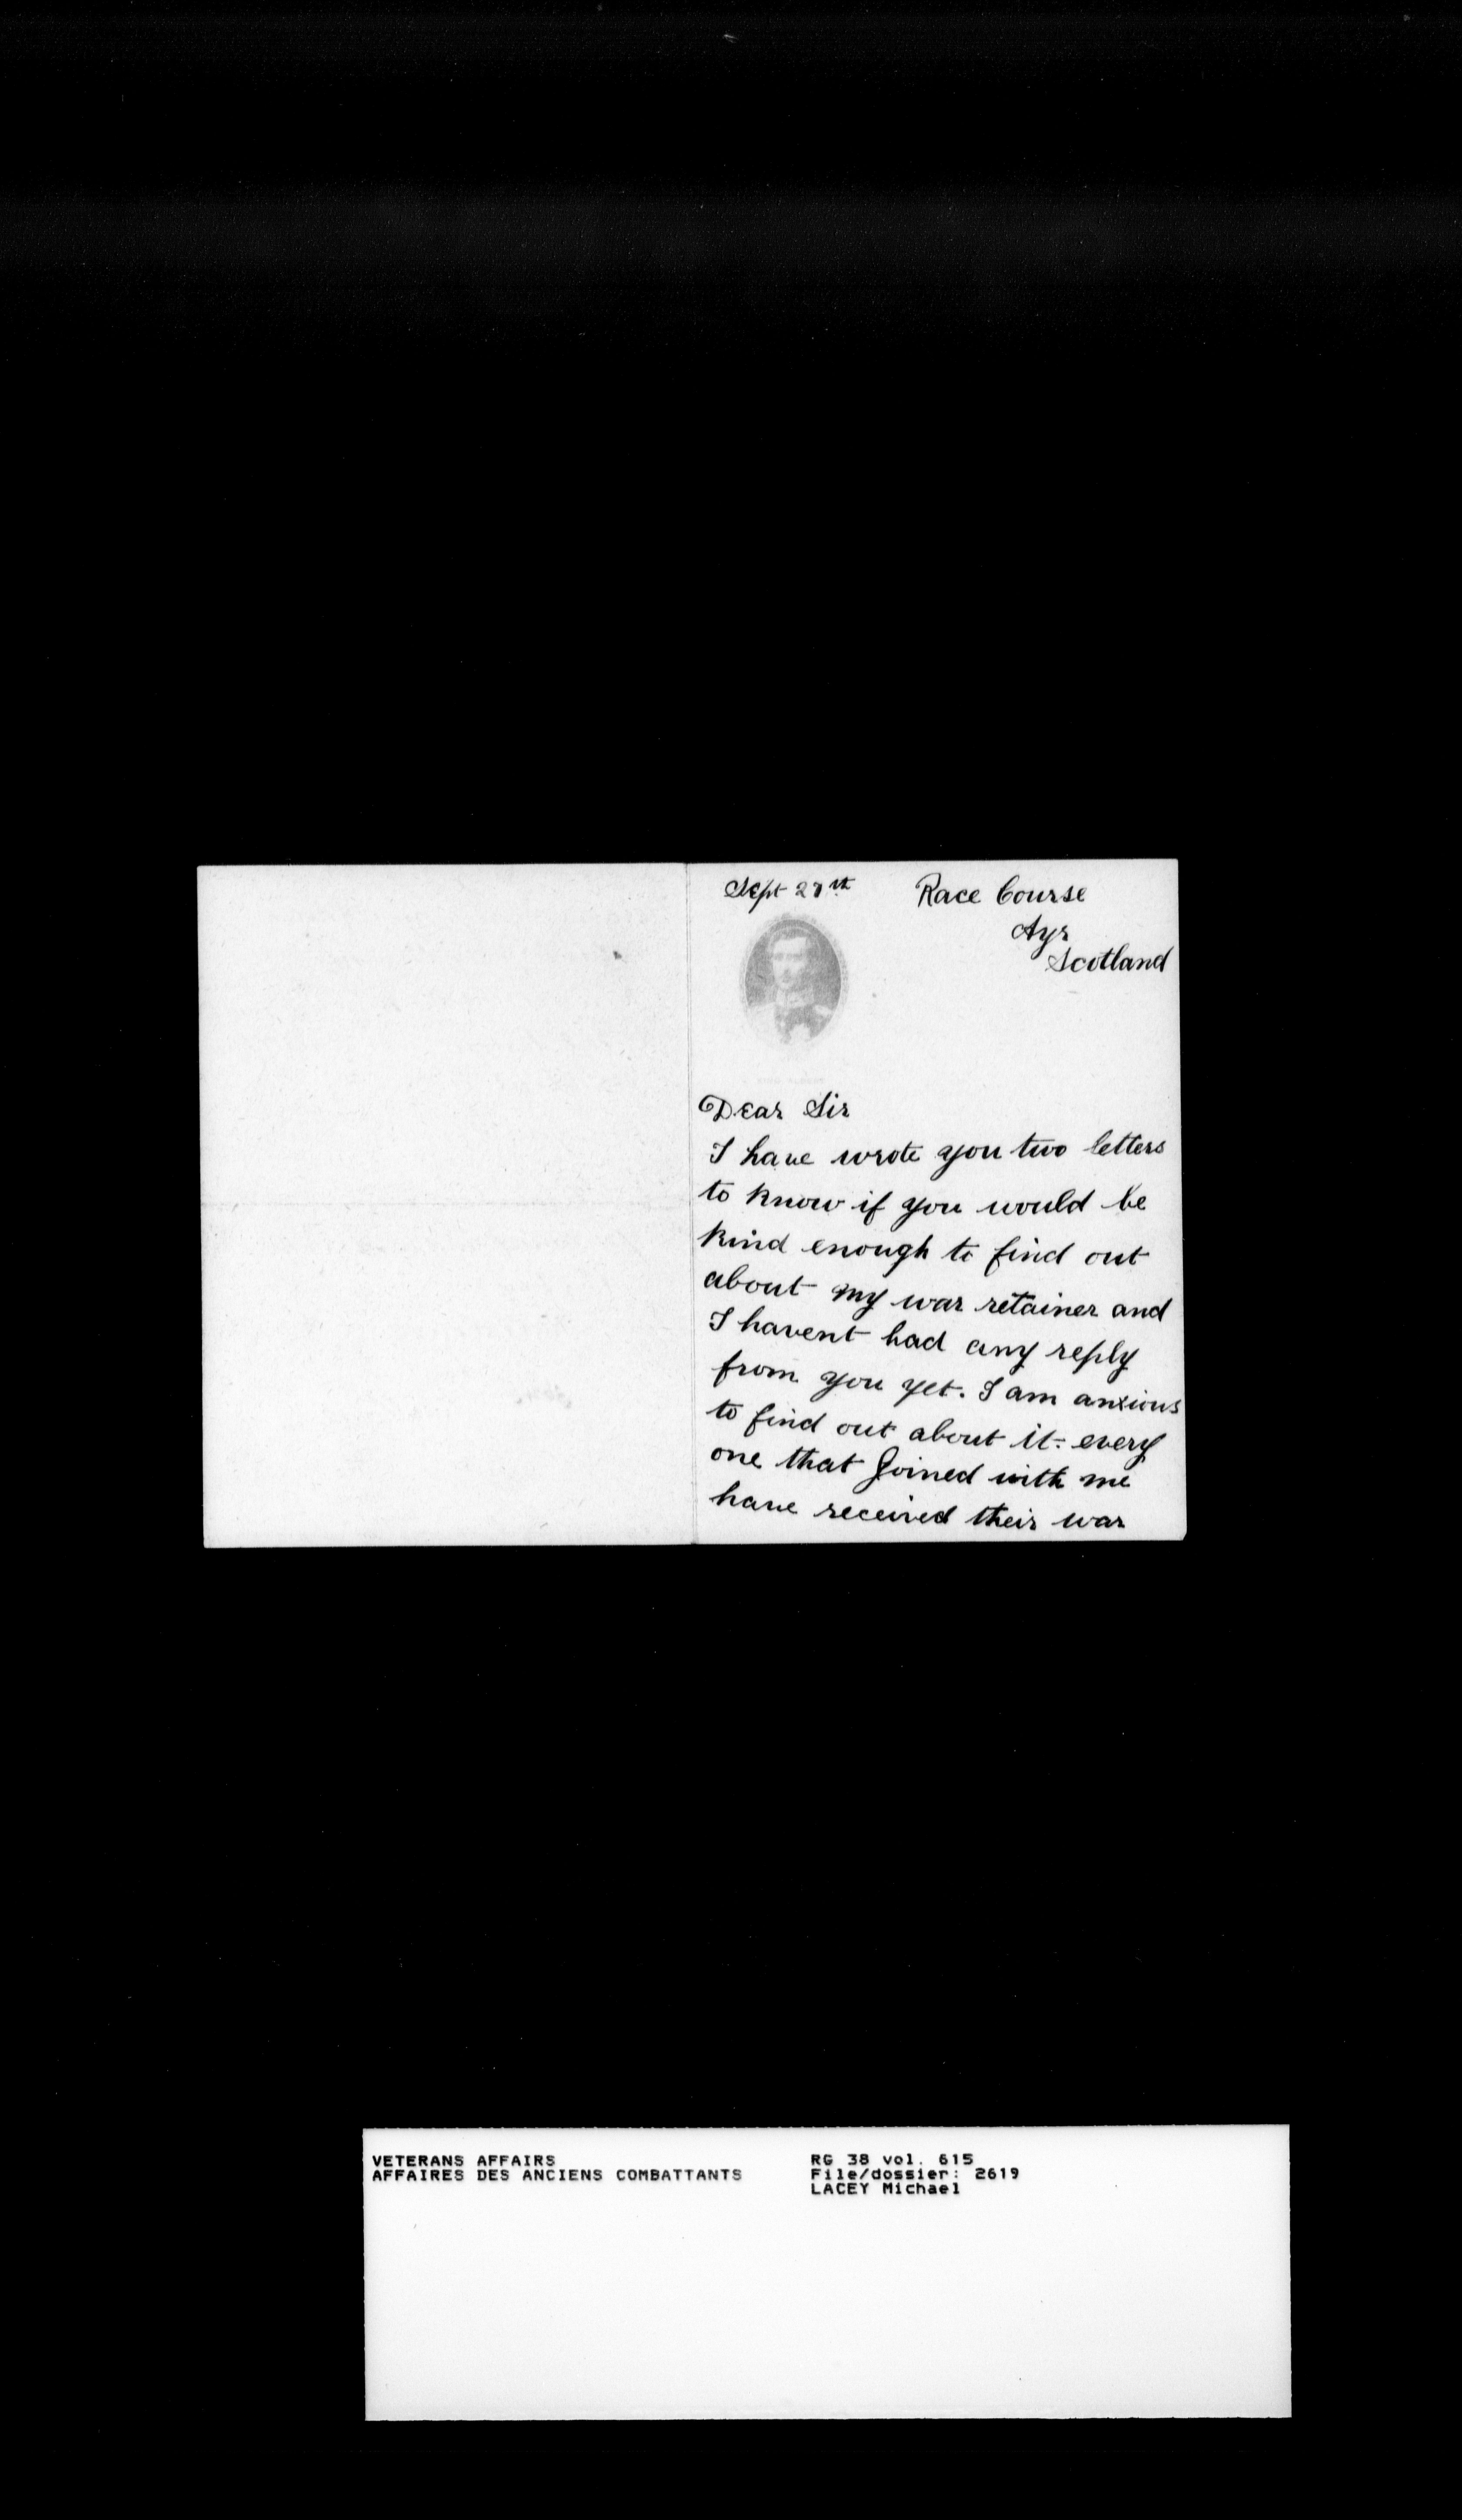 Sept 27th
Race Course
Ayr
Scotland
Dear Sir
I have wrote you two letters
to know if you would be
kind enough to find out
about my war retainer and
I havent had any reply
from you yet. I am anxious
to find out about it. every
one that Joined with me
have received their war
VETERANS AFFAIRS
AFFAIRES DES ANCIENS COMBATTANTS
RG 38 vol. 615
File/dossier: 2619
LACEY Michael